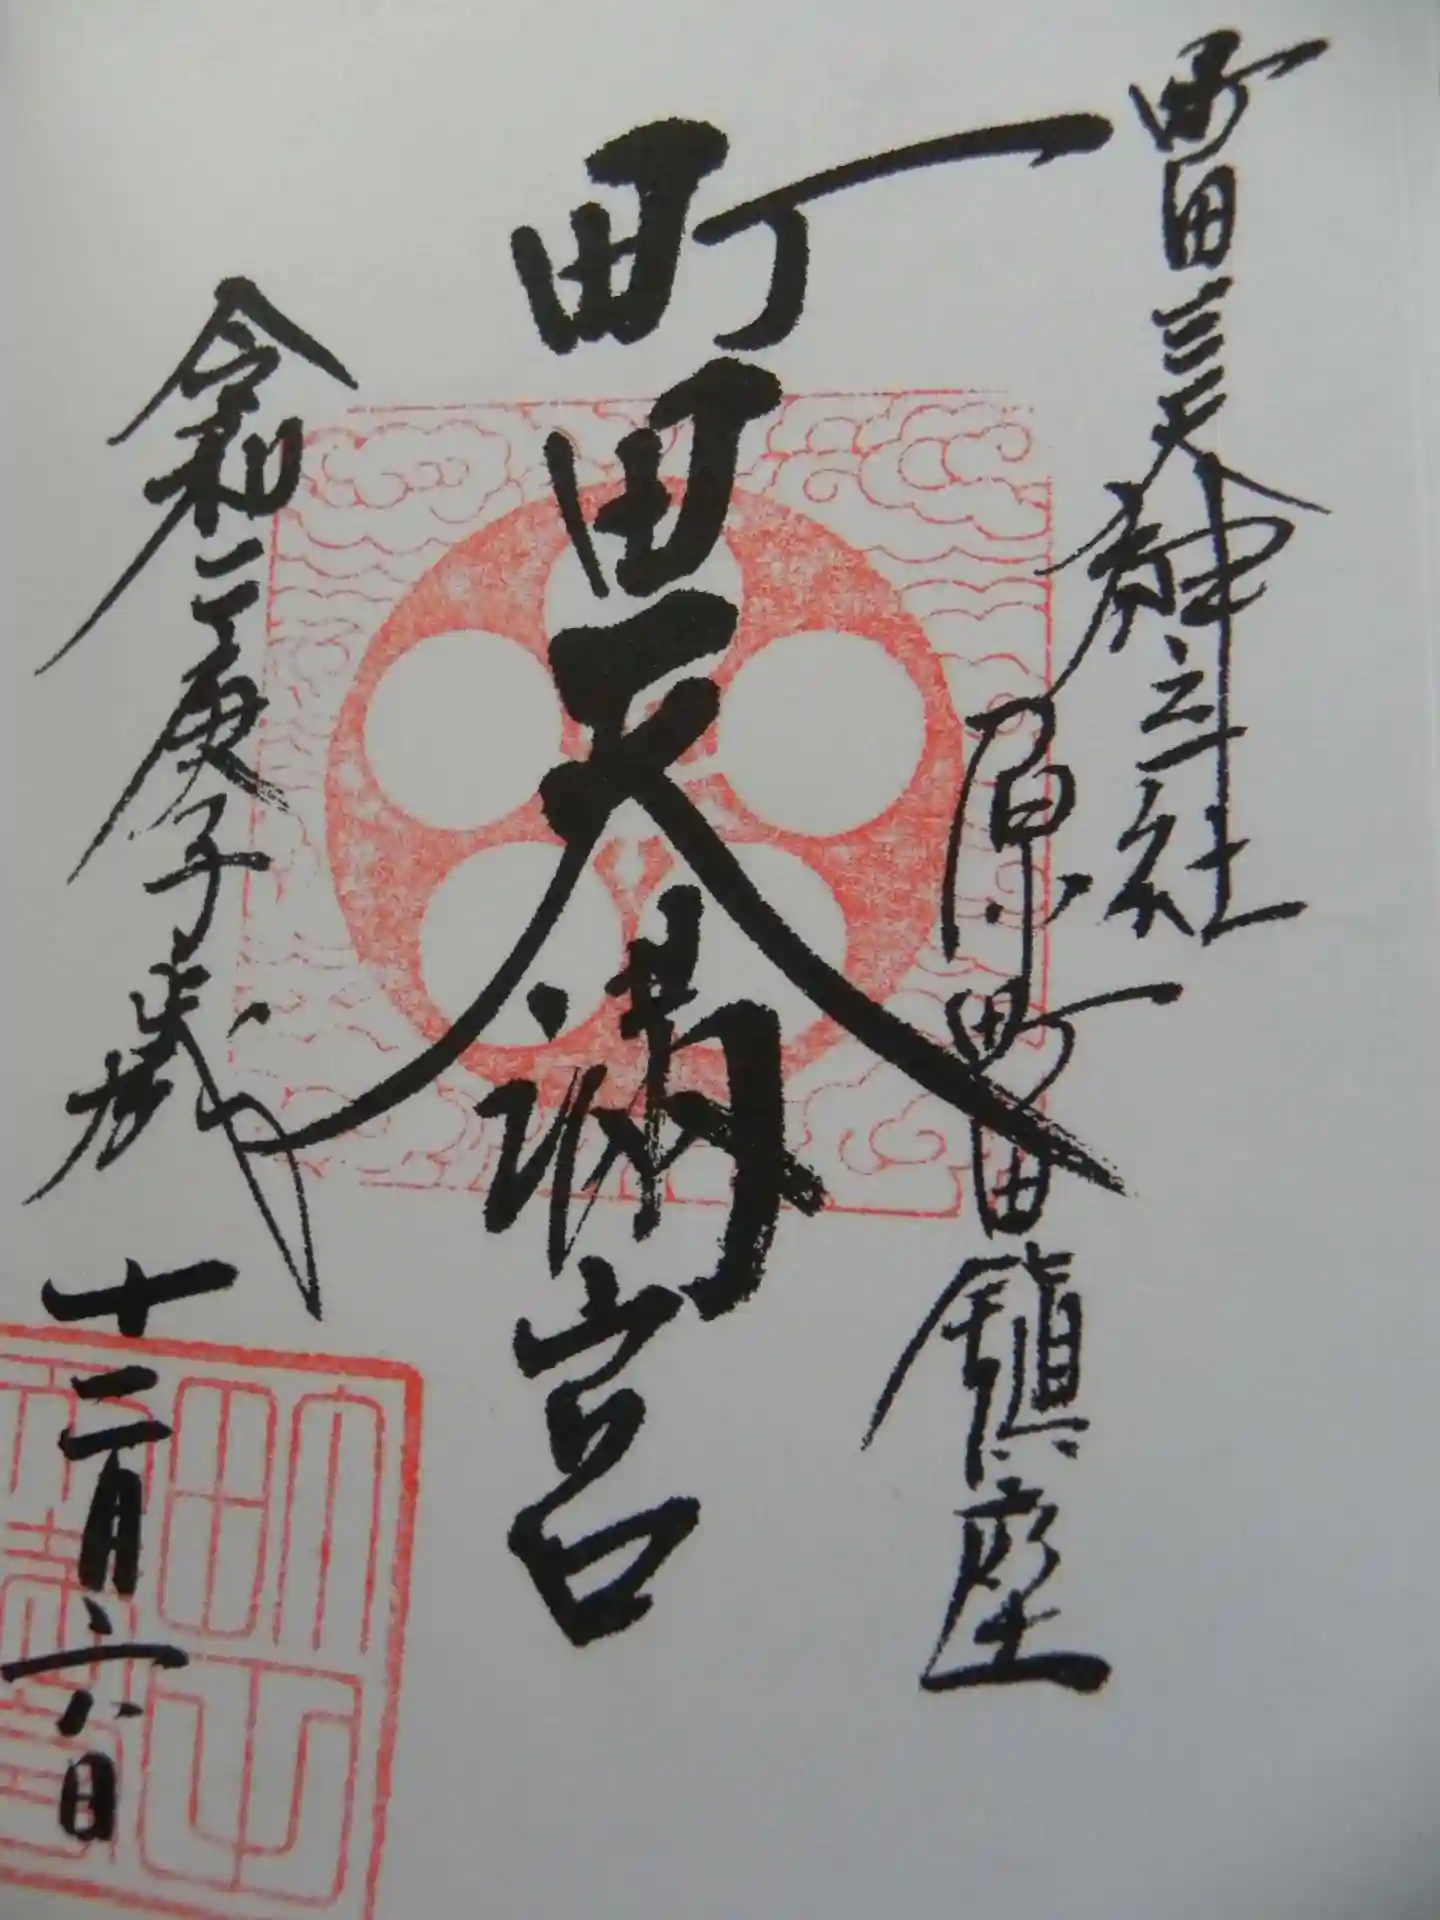 町田三天神之一社
原町田鎮座
町田天満宮
令和二年庚子歳
十二月六日